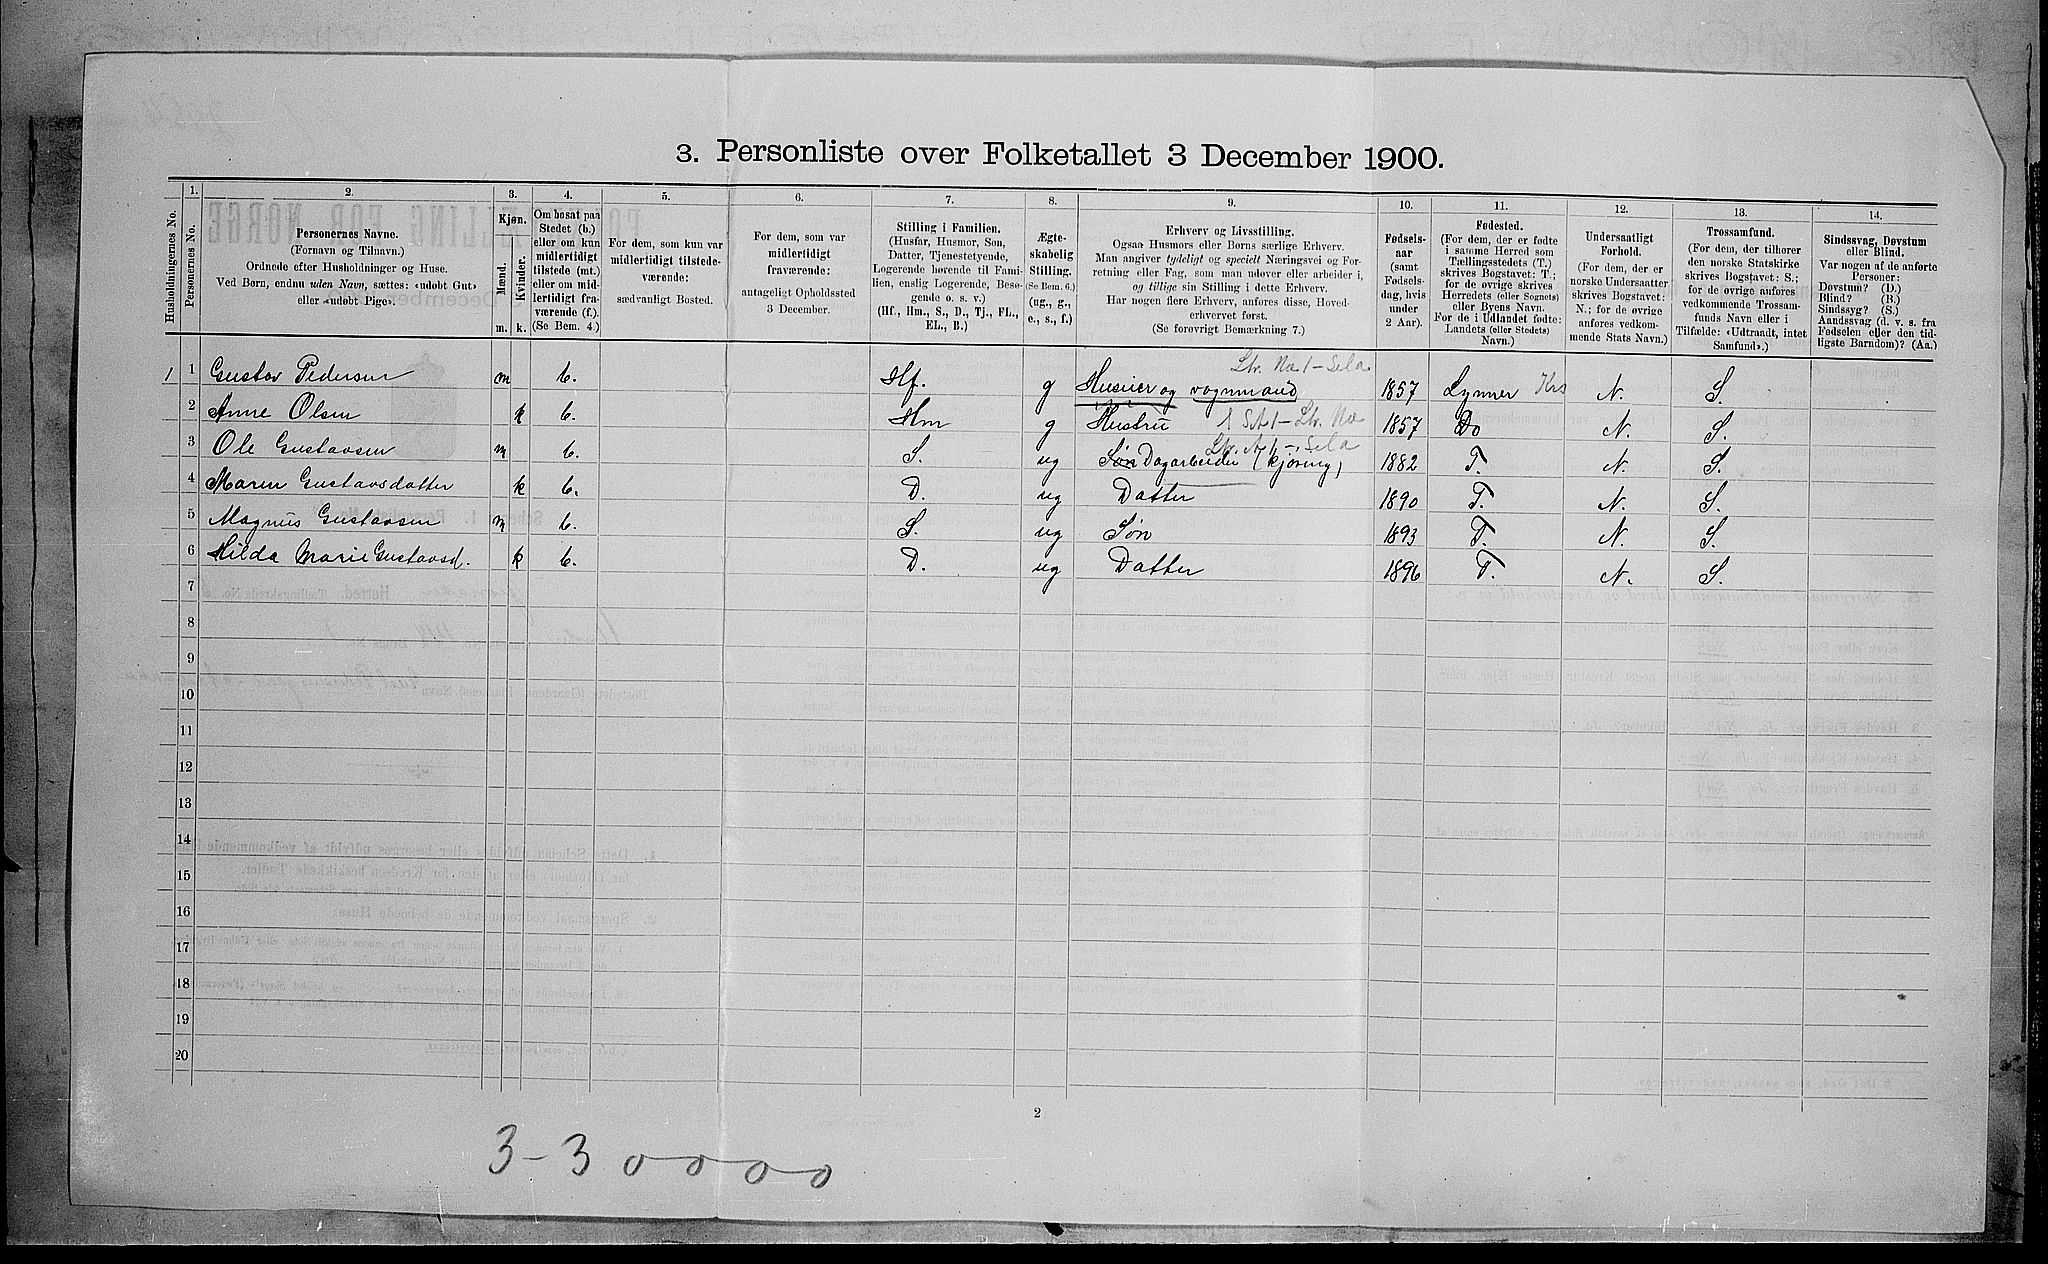 3. Personliste over Folketallet 3 December 1900.
1. 2. 3. 4. 5. 6. 7. 8. 9. 10. 11. 12. 13. 14.
Husholdningernes No.
Personernes No.
Personernes Navne.
(Fornavn og Tilnavn.)
Ordnede efter Husholdninger og Huse.
Ved Børn, endnu uden Navn, sættes: «udøbt Gut»
eller «udøbt Pige».
Kjøn.
Mænd.
Kvinder.
m. k.
Om bosat paa
Stedet (b.)
eller om kun
midlertidigt
tilstede (mt.)
eller om mid-
lertidigt fra-
værende (f.).
(Se Bem. 4.)
For dem, som kun var
midlertidigt tilstede-
værende:
sædvanligt Bosted.
For dem, som var
midlertidigt
fraværende:
antageligt Opholdssted
3 December.
Stilling i Familien.
(Husfar, Husmor, Søn,
Datter, Tjenestetyende,
Logerende hørende til Fami-
lien, enslig Logerende, Besø-
gende o. s. v.)
(Hf., Hm., S., D., Tj., FL.,
EL., B.)
Ægte-
skabelig
Stilling.
(Se Bem. 6.)
(ug., g.,
e., s., f.)
Erhverv og Livsstilling.
Ogsaa Husmors eller Børns særlige Erhverv.
Man angiver tydeligt og specielt Næringsvei og For-
retning eller Fag, som man udøver eller arbeider i,
og tillige sin Stilling i dette Erhverv.
Har nogen flere Erhverv, anføres disse, Hoved-
erhvervet først.
(Se forøvrigt Bemærkning 7.)
Fødsels-
aar
(samt
Fødsels-
dag, hvis
under
2 Aar).
Fødested.
(For dem, der er fødte
i samme Herred som
Tællingsstedets (T.)
skrives Bogstavet: T.;
for de øvrige skrives
Herredets (eller Sognets)
eller Byens Navn.
For de i Udlandet fødte:
Landets (eller Stedets)
Navn.)
Undersaatligt
Forhold.
(For dem, der er
norske Undersaatter
skrives Bogstavet:
N.; for de øvrige
anføres vedkom-
mende Stats Navn.)
Trossamfund.
(For dem, der tilhører
den norske Statskirke
skrives Bogstavet: S.;
for de øvrige anføres
vedkommende Trossam-
funds Navn eller i
Tilfælde: «Udtraadt, intet
Samfund».)
Sindssvag, Døvstum
eller Blind.
Var nogen af de anførte
Personer:
Døvstum? (D.)
Blind? (B.)
Sindssyg? (S.)
Aandssvag (d. v. s. fra
Fødselen eller den tid-
ligste Barndom)? (Aa.)
Ltr. Næ 1 – Sela
1 1 Gustav Pedersen m b. Hf. g Huseier og vognmand 1857 Lynner Krs N. S.
2 Anne Olsen k b. Hm g Hustru 1 SA 1 – Ltr. Næ 1857 Do N. S.
Ltr. A 1 – Sela
3 Ole Gustavsen m b. S. ug Søn Dagarbeider (kjøring) 1882 T. N. S.
4 Maren Gustavsdatter k b. D. ug Datter 1890 T. N. S.
5 Magnus Gustavsen m b. S. ug Søn 1893 T. N. S.
6 Hilda Marie Gustavsd. k b. D. ug Datter 1896 T. N. S.
7
8
9
10
11
12
13
14
15
16
17
18
19
20
2
3-3 0000